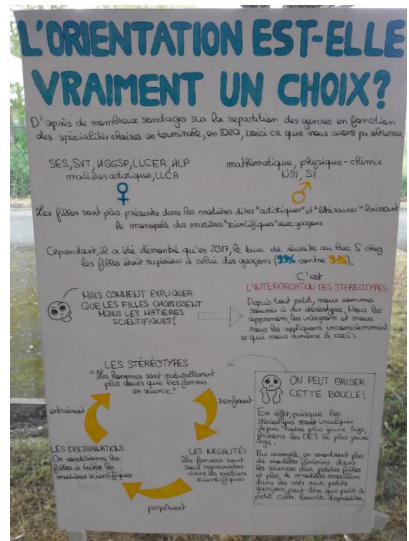 L'ORIENTATION EST-ELLE
VRAIMENT UN CHOIX?
D'après de nombreux sondages sur la répartition des genres en fonction
des spécialités choisies en terminale, en 2020, voici ce que nous avons pu observer,
SES, SVT, HGGSP, LLCER, HLP
matières artistiques, LLCA
♀
mathématique, physique-chimie
NSI, SI
♂
Les filles sont plus présentes dans les matières dites "artistiques" et "littéraires" laissant
le monopole des matières "scientifiques" aux garçons
Cependant, il a été démontré qu'en 2017, le taux de réussite au bac S chez
les filles était supérieur à celui des garçons (93% contre 91%).
MAIS COMMENT EXPLIQUER
QUE LES FILLES CHOISISSENT
MOINS LES MATIÈRES
SCIENTIFIQUES?
C'est
L'INTERIORISATION DES STÉRÉOTYPES
Depuis tout petit, nous sommes
soumis à des stéréotypes, Nous les
apprenons, les intégrons et nous
nous les appliquons inconsciemment
ce qui nous amène à ceci:
LES STÉRÉOTYPES
"Les hommes sont naturellement
plus doués que les femmes
en science."
renforcent
LES INÉGALITÉS
Les femmes sont
sous représentées
dans les métiers
scientifiques
perpétuent
LES DISCRIMINATIONS
On conditionne les
filles à éviter les
matières scientifiques
entrainent
ON PEUT BRISER
CETTE BOUCLE!
En effet, puisque les
stéréotypes sont inculqués
depuis notre plus jeune âge,
brisons les DÈS le plus jeune
âge.
Par exemple, en montrant plus
de modèles féminins dans
les sciences aux petites filles
et plus de modèles masculins
dans les arts aux petits
garçons, peut-être que petit à
petit cette boucle